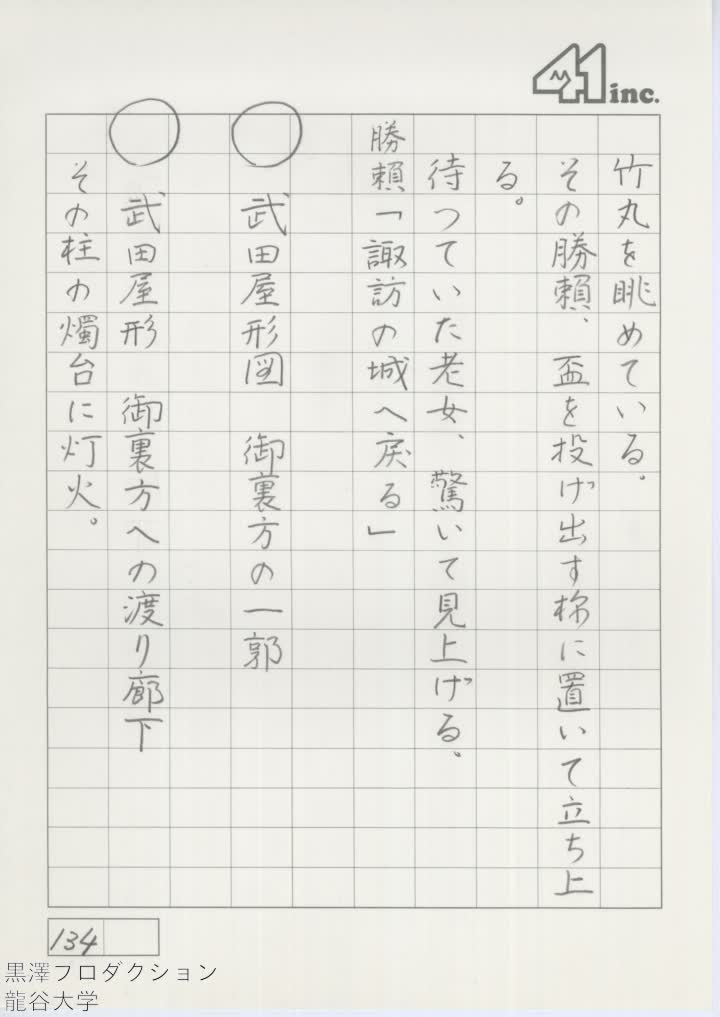 41 inc.
竹丸を眺めている。
その勝頼、盃を投げ出す様に置いて立ち上
る。
待つていた老女、驚いて見上げる。
勝頼「諏訪の城へ戻る」
○　武田屋形図　御裏方の一郭
○　武田屋形　御裏方への渡り廊下
その柱の燭台に灯火。
134
黒澤プロダクション
龍谷大学